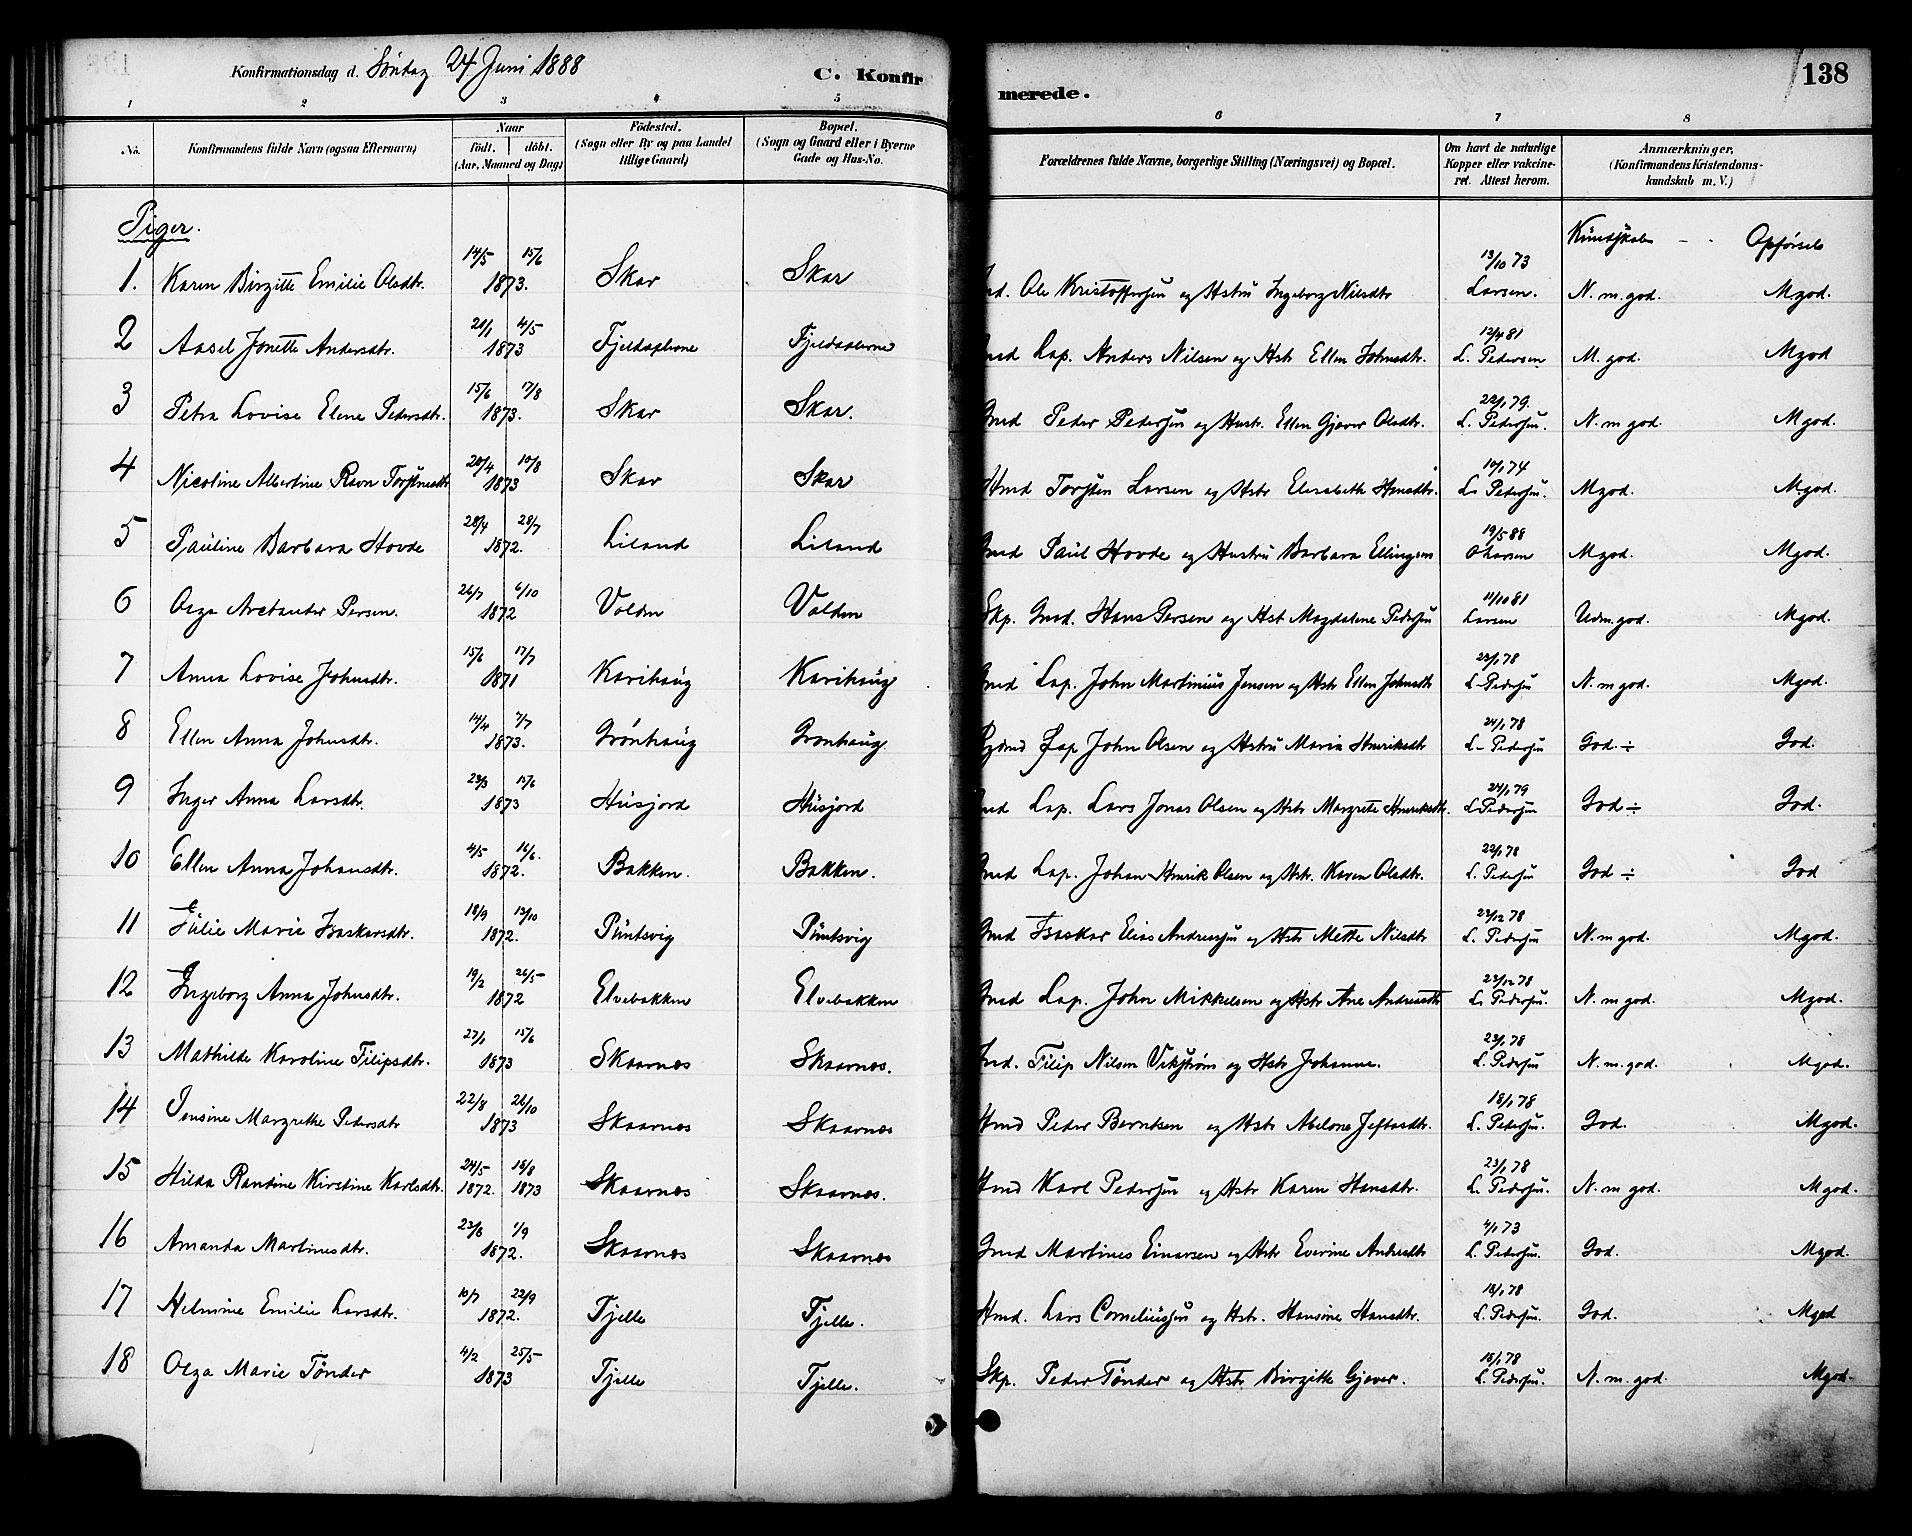 Konfirmationsdag d. Söndag 24 Juni 1888 C. Konfirmerede. 138
1 2 3 4 5 6 7 8
No. Konfirmandens fulde Navn (ogsaa Efternavn) Naar födt. döbt. (Aar, Maaned og Dag) Födested. (Sogn eller By og paa Landet tillige Gaard) Bopæl. (Sogn og Gaard eller i Byerne Gade og Hus-No. Forældrenes fulde Navne, borgerlige Stilling (Næringsvei) og Bopæl. Om havt de naturlige Kopper eller vakcineret. Attest herom. Anmærkninger, (Konfirmandens Kristendomskundskab m. V.)
Piger. Kundskab - - Opførsel
1. Karen Birgitte Emilie Olsdtr. 14/5 15/6 1873. Skar Skar Ole Kristoffersen og Hstru Ingeborg Nilsdtr 13/10 73 Larsen. N. m. god. Mgod.
2 Aasel Jonette Andersdtr. 21/1 4/5 1873 Lap. Anders Nilsen og Hstr Ellen Johnsdtr. 12/4 81 L. Pedersen M. god. Mgod
3 Petra Lovise Elene Pedersdtr. 15/6 17/8 1873. Skar Skar. Gmd Peder Pedersen og Hustr. Ellen Gjæver Olsdtr. 22/1 79. L. Pedersen. N. m god. M god.
4 Nicoline Albertine Ravn Torstensdtr 20/4 10/8 1873 Skar Skar Hmd Torsten Larsen og Hstr Elisabeth Hansdtr. 10/1 74 L. Pedersen. Mgod. Mgod.
5 Pauline Barbara Hovde 28/4 28/7 1872. Liland Liland Gmd Paul Hovde og Hustru Barbara Ellingsen 19/5 88 O Larsen Mgod. Mgod.
6 Olga Arctander Persen. 26/7 6/10 1872 Volden Volden Skp. Gmd. Hans Persen og Hst Magdalene Pedersen 11/10 81 Larsen Udm. god. Mgod.
7 Anna Lovise Johnsdtr. 15/6 17/7 1871 Karihaug Karihaug Gmd Lap. John Martinius Jensen og Hstr Ellen Johnsdtr 23/1 78 L. Pedersen N. m god. Mgod.
8 Ellen Anna Johnsdtr. 14/4 7/7 1873. Grönhaug Grönhaug Lap John Olsen og Hstru Maria Henriksdtr 24/1 78 L. Pedersen God. ÷ God.
9 Inger Anna Larsdtr. 23/3 15/6 1873 Husjord Husjord Gmd Lap. Lars Jonas Olsen og Hstr Margrete Henriksdtr. 24/1 79 L. Pedersen God ÷ God.
10 Ellen Anna Johansdtr. 4/5 16/6. 1872. Bakken. Bakken. Gmd Lap. Johan Henrik Olsen og Hstr. Karen Olsdtr. 22/1 78 L. Pedersen God ÷ God
11 Julie Marie Isaskarsdtr. 18/9 13/10 1872. Puntsvig Puntsvig Gmd Isaskar Elias Andreasen og Hstr Mette Nilsdtr 23/12 78 L. Pedersen N. m god. Mgod.
12 Ingeborg Anna Johnsdtr. 19/2 26/5 1872 Elvebakken Elvebakken Gmd Lap. John Mikkelsen og Hstr Ane Andreasdtr 23/12 78 L. Pedersen. N. m god. Mgod.
13 Mathilde Karoline Filipsdtr. 27/1 15/6 1873 Skaarnes Skaarnes. Ind. Filip Nilsen Vikström og Hstr Johanne. 23/1 78 L. Pedersen N. m. god. Mgod.
14 Jensine Margrethe Pedersdtr 22/8 26/10 1873 Skaarnes Skaarnes Hmd Peder Berntsen og Hstr Abelone Jeftasdtr. 18/1 78 L. Pedersen. God. Mgod.
15 Hilda Randine Kirstine Karlsdtr. 24/5 1872. 16/8 1873 Skaarnes Skaarnes. Hmd Karl Pedersen og Hstr Karen Hansdtr. 23/1 78 L. Pedersen. N. m god. Mgod.
16 Amanda Martinesdtr. 23/6 1/9 1872. Skaarnes Skaarnes Gmd Martines Einarsen og Hstr Everine Andersdtr 4/1 73 L. Pedersen. God. Mgod.
17 Helmine Emilie Larsdtr. 10/7 22/9 1872. Fjelle Fjelle. Hmd. Lars Corneliussen og Hstr. Hansine Hansdtr. 18/1 78 L. Pedersen. God. Mgod
18 Olga Marie Tönder 4/2 25/5 1873 Fjelle Fjelle. Skp. Peder Tönder og Hstr Birgitte Gjæver. 18/1 78 L. Pedersen. N. m. god. Mgod.